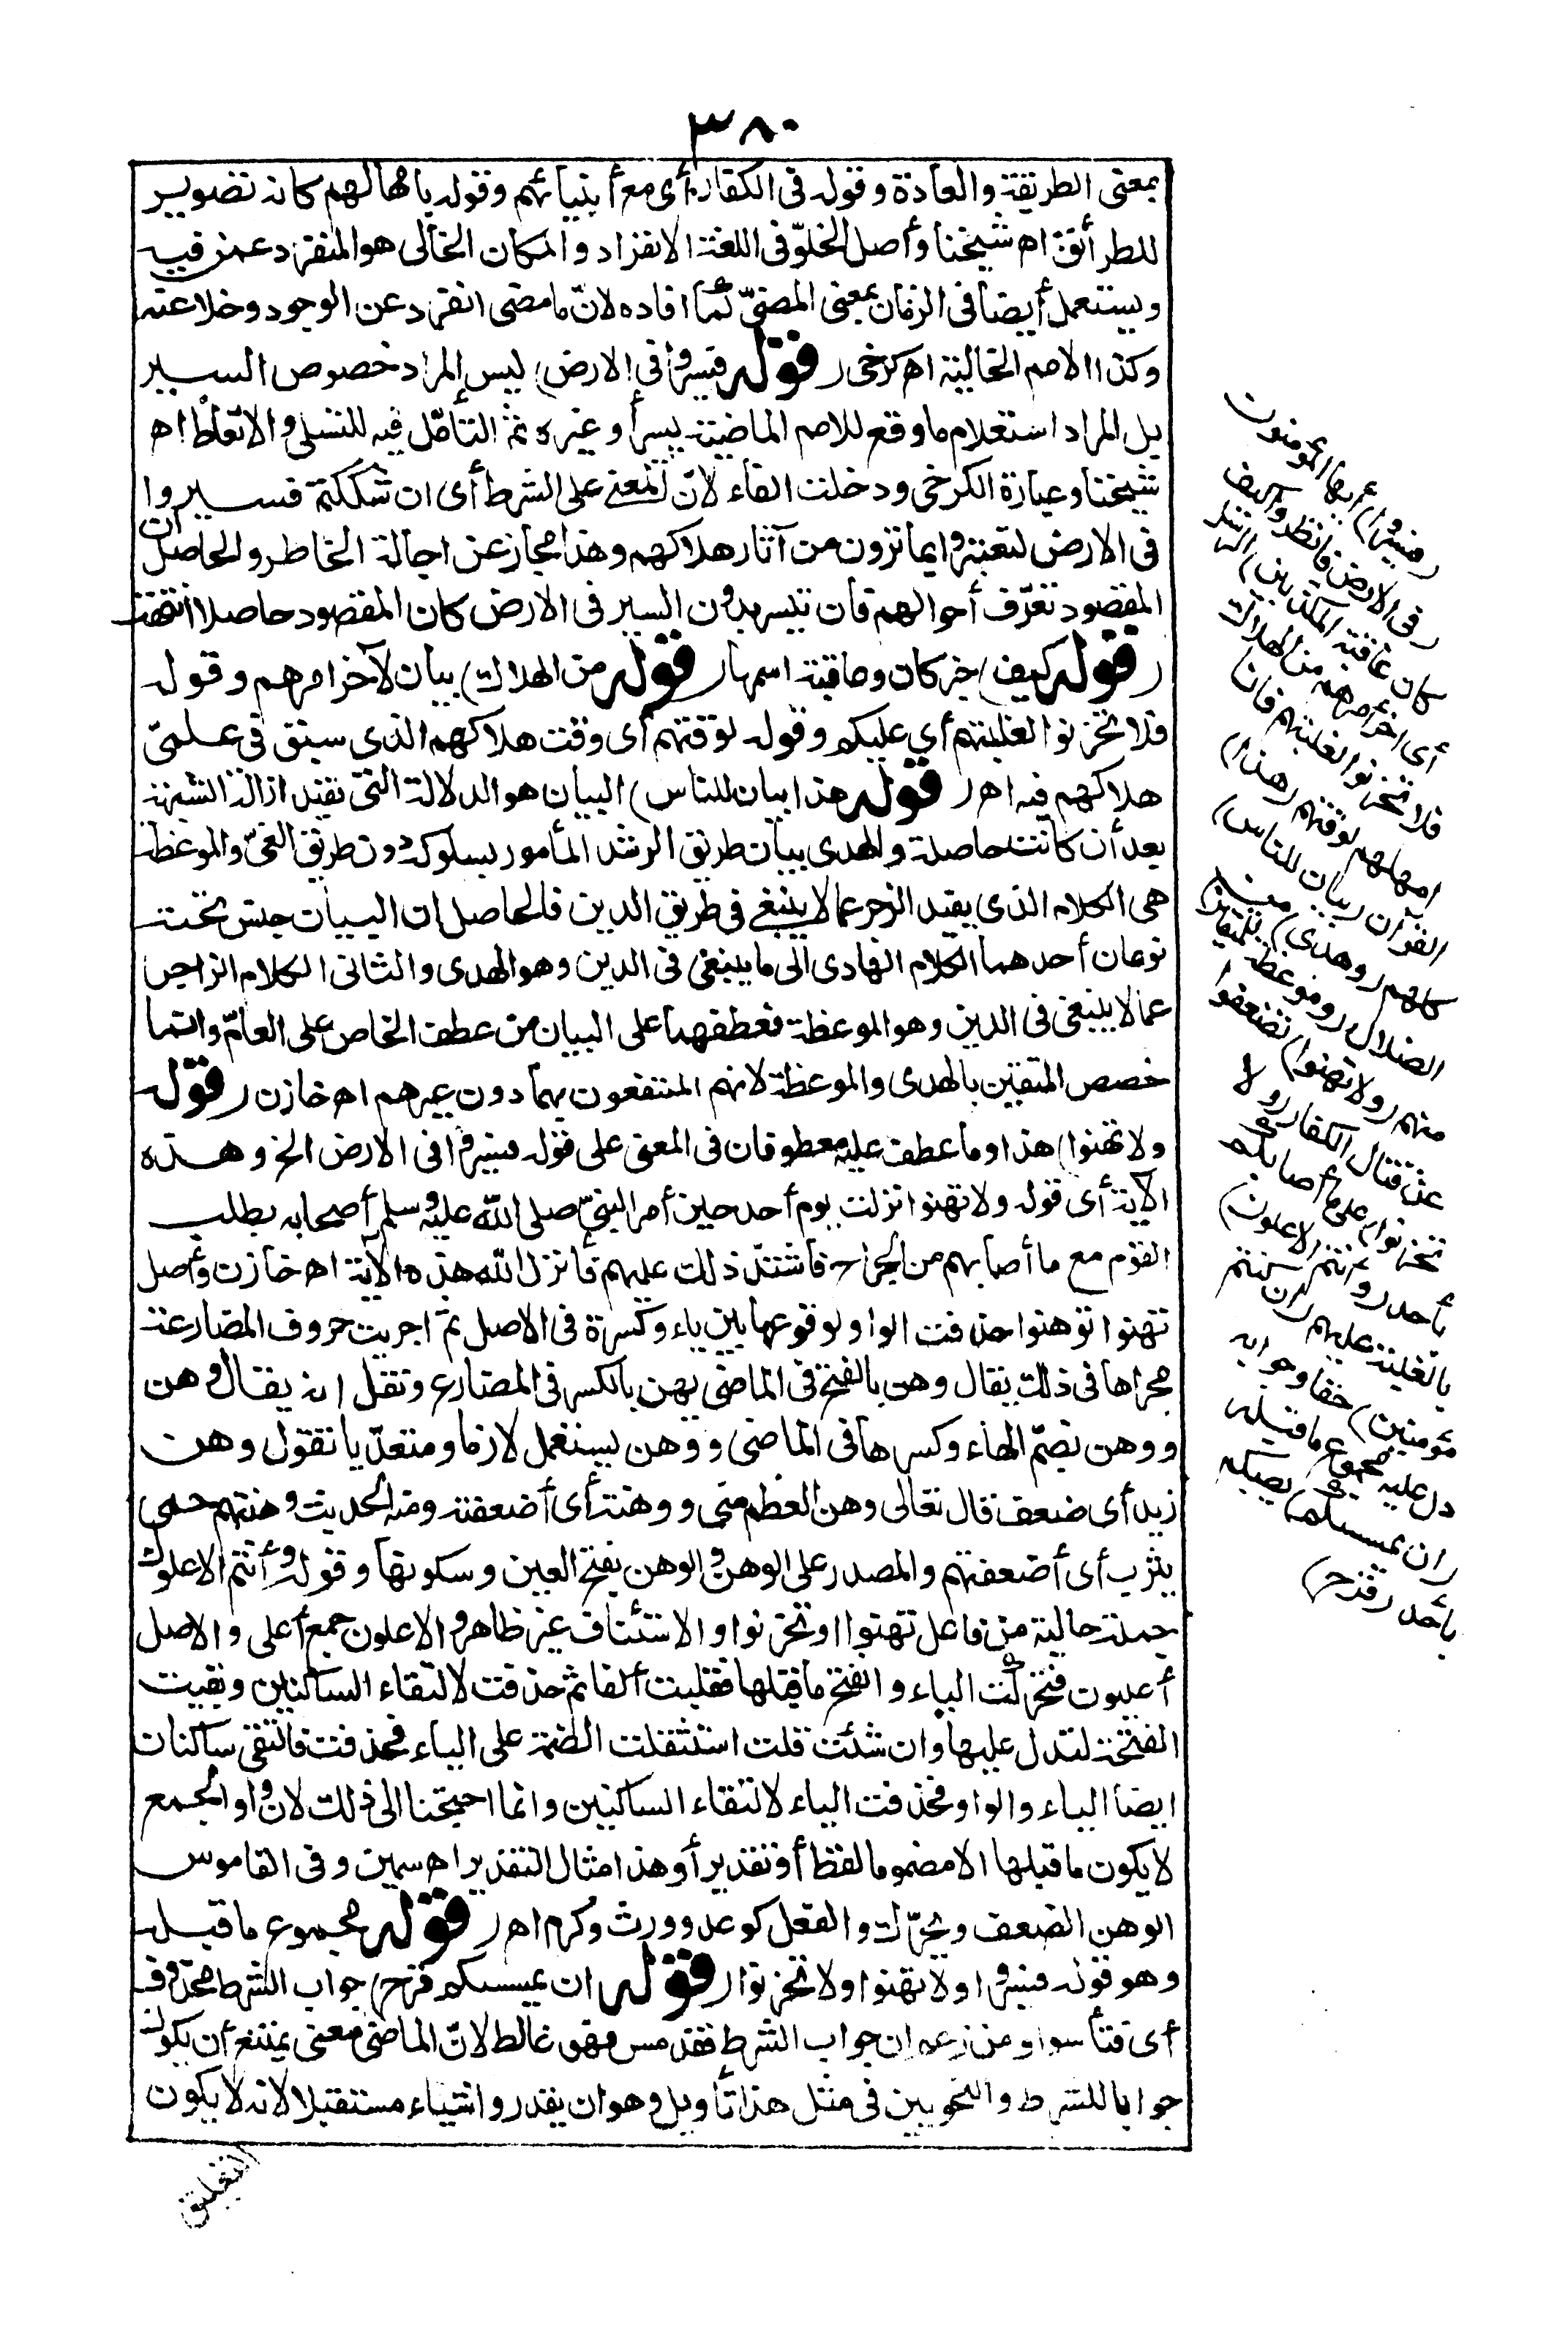 ٣٨٠
بمعنى الطريقة والعادة وقوله فى الكفار أى مع أنبيائهم وقوله بامهالهم كانه تصوير
للطرائق اه شيخنا وأصل الخلوّ فى اللغة الانفراد والمكان الخالى هو المنفرد عمن فيه
ويستعمل أيضا فى الزمان بمعنى المضىّ كما افاده لانّ ما مضى انفرد عن الوجود وخلا عنه
وكذا الامم الخالية اه كرخى (قوله فسيروا فى الارض) ليس المراد خصوص السير
بل المراد استعلام ما وقع للامم الماضية بسير أو غيره ثم التأمّل فيه للتسلى والاتعاظ اه
شيخنا وعبارة الكرخى ودخلت الفاء لانّ المعنى على الشرط أى ان شككتم فسيروا
فى الارض لتعتبروا بما ترون من آثار هلاكهم وهذا مجاز عن اجالة الخاطر والحاصل ان
المقصود تعرّف أحوالهم فان تيسر بدون السير فى الارض كان المقصود حاصلا انتهت
(قوله كيف) خبر كان وعاقبة اسمها (قوله من الهلاك) بيان لآخر امرهم وقوله
فلا تحزنوا لغلبتهم أي عليكم وقوله لوقتهم أى وقت هلاكهم الذى سبق فى علمىّ
هلاكهم فيه اه (قوله هذا بيان للناس) البيان هو الدلالة التى تفيد ازالة الشبهة
بعد أن كانت حاصلة والهدى بيان طريق الرشد المأمور بسلوكه دون طريق الغىّ والموعظة
هى الكلام الذى يفيد الزجر عما لا ينبغى فى طريق الدين فالحاصل ان البيان جنس تحته
نوعان أحدهما الكلام الهادى الى ما ينبغى فى الدين وهو الهدى والثانى الكلام الزاجر
عما لا ينبغى فى الدين وهو الموعظة فعطفهما على البيان من عطف الخاص على العامّ وانما
خصص المتقين بالهدى والموعظة لانهم المنتفعون بهما دون غيرهم اه خازن (قوله
ولا تهنوا) هذا وما عطف عليه معطوفان فى المعنى على قوله فسيروا فى الارض الخ وهذه
الآية أى قوله ولا تهنوا نزلت يوم أحد حين أمر النبىّ صلى الله عليه وسلم أصحابه بطلب
القوم مع ما أصابهم من الجراح فاشتدّ ذلك عليهم فأنزل الله هذه الآية اه خازن وأصل
تهنوا توهنوا حذفت الواو لوقوعها بين ياء وكسرة فى الاصل ثم اجريت حروف المضارعة
مجراها فى ذلك يقال وهن بالفتح فى الماضى يهن بالكسر فى المضارع ونقل انه يقال وهن
ووهن بضمّ الهاء وكسرها فى الماضى ووهن يستعمل لازما ومتعدّيا تقول وهن
زيد أى ضعف قال تعالى وهن العظم منى ووهنته أى أضعفته ومنه الحديث وهنتهم حمى
يثرب أى أضعفتهم والمصدر على الوهن والوهن بفتح العين وسكونها وقوله وأنتم الاعلون
جملة حالية من فاعل تهنوا او تحزنوا والاستئناف غير ظاهر والاعلون جمع أعلى والاصل
أعليون فتحرّكت الياء وانفتح ما قبلها فقلبت ألفا ثم حذفت لالتقاء الساكنين وبقيت
الفتحة لتدل عليها وان شئت قلت استثقلت الضمة على الياء فحذفت فالتقى ساكنان
ايضا الياء والواو فحذفت الياء لالتقاء الساكنين وانما احتجنا الى ذلك لان واو الجمع
لا يكون ما قبلها الا مضموما لفظا أو تقديرا وهذا مثال التقدير اه سمين وفى القاموس
الوهن الضعف ويحرّك والفعل كوعد وورث وكرم اه (قوله مجموع ما قبله
وهو قوله فسيروا ولا تهنوا ولا تحزنوا (قوله ان يمسسكم قرح) جواب الشرط محذوف
أى فتأسوا ومن زعم ان جواب الشرط فقد مس فهو غالط لانّ الماضى معنى يمتنع أن يكون
جوابا للشرط والنحويين فى مثل هذا تأويل وهو ان يقدروا شيأ مستقبلا لانه لا يكون
التعليق
(فسيروا) أيها المؤمنون
(فى الارض فانظروا كيف
كان عاقبة المكذبين) الرسل
أى اخر أمرهم من الهلاك
فلا تحزنوا لغلبتهم فانا
امهلهم لوقتهم (هذا)
القرآن (بيان للناس)
كلهم (وهدى) من
الضلال (وموعظة للمتقين)
منهم (ولا تهنوا) تضعفوا
عن قتال الكفار (ولا
تحزنوا) على ما أصابكم
بأحد (وأنتم الاعلون)
بالغلبة عليهم (ان كنتم
مؤمنين) حقا وجوابه
دل عليه مجموع ما قبله
(ان يمسسكم) يصبكم
بأحد (قرح)